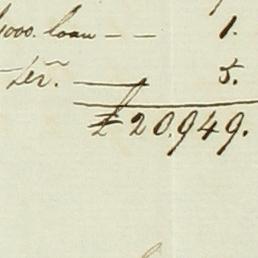 000. loan - - 1.
ter. — 5.
£20,949.